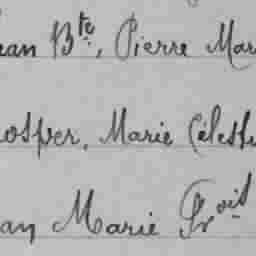 ean Bte, Pierre Mar
rosper, Marie Céleste
an Marie Frois